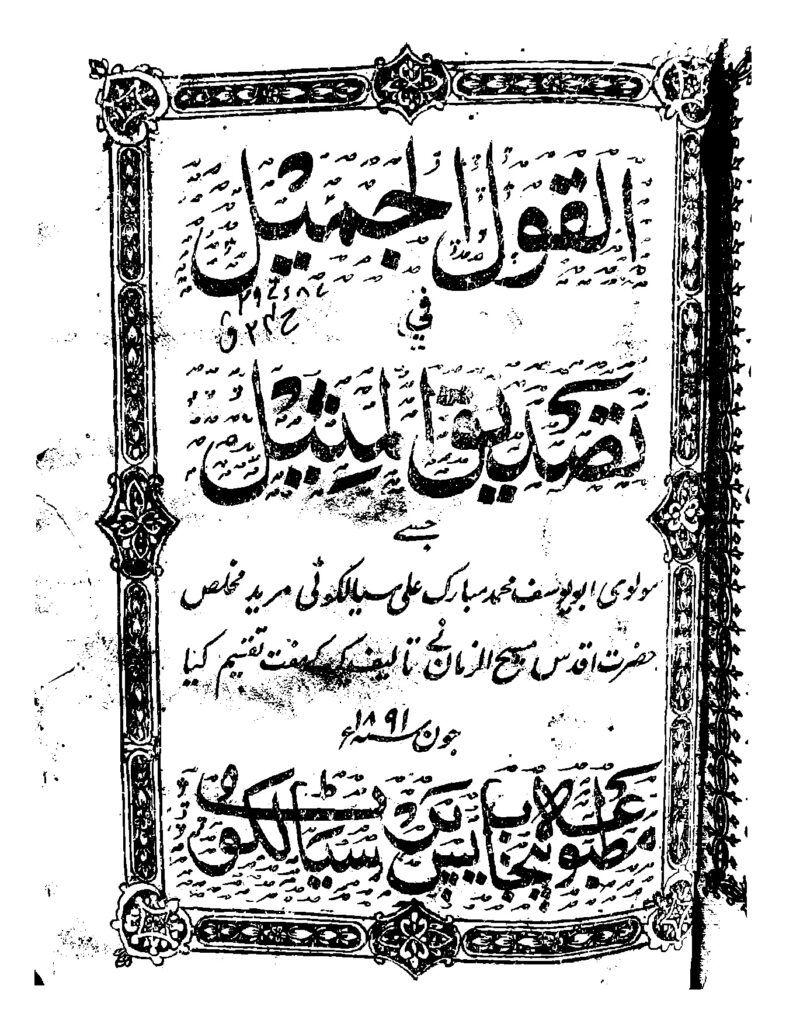 القول الجمیل
فی
تصدیق المثیل
جسے
مولوی ابو یوسف محمد مبارک علی سیالکوٹی مرید مخلص
حضرت اقدس مسیح الزمان نے تالیف کر کے مفت تقسیم کیا
جون سنہ ۱۸۹۱ء
مطبوعہ پنجاب پریس سیالکوٹ